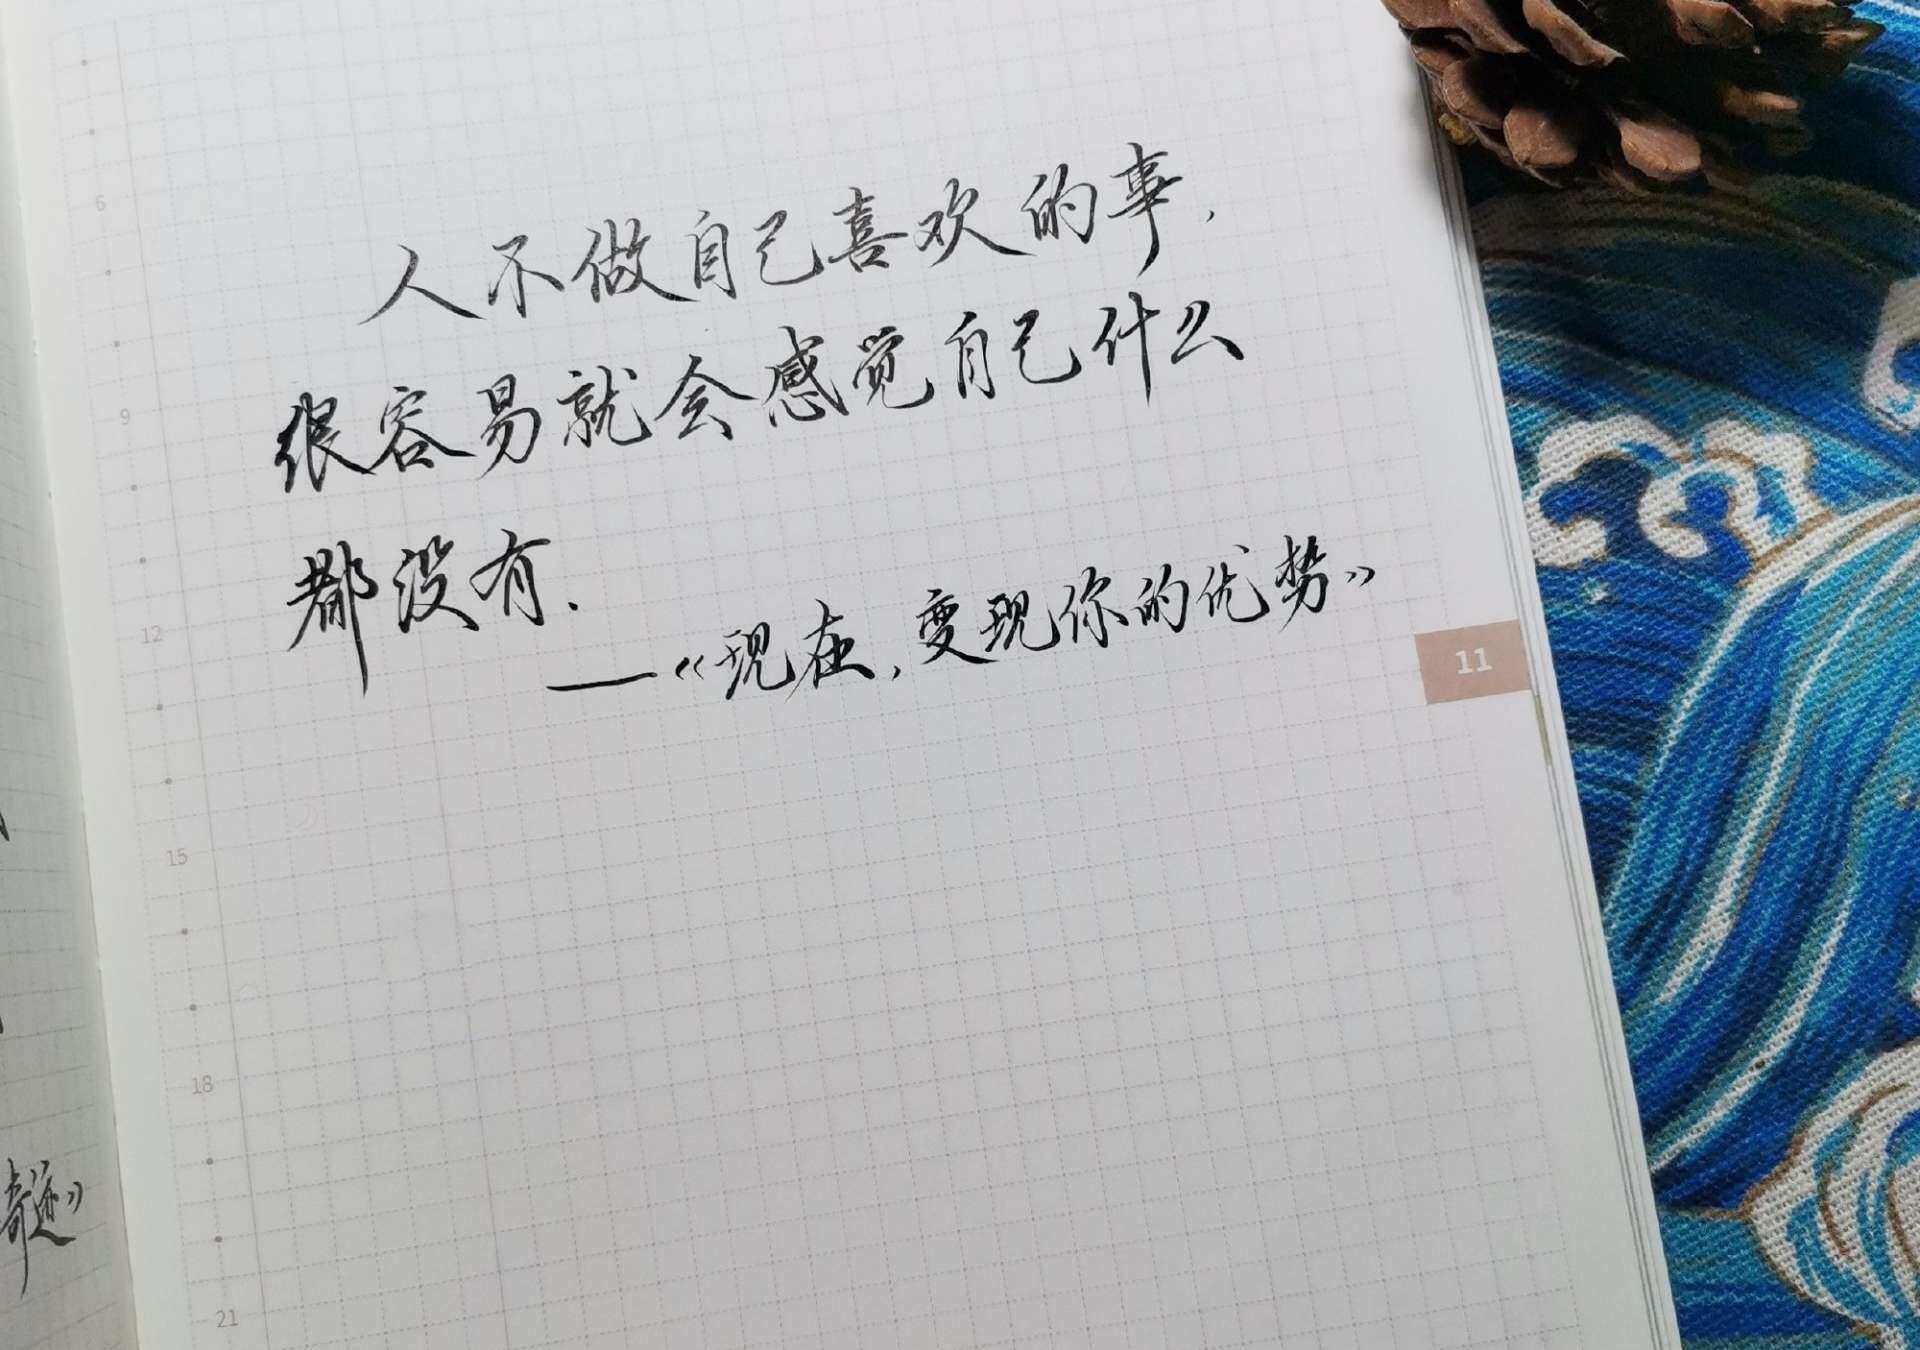 人不做自己喜欢的事,
很容易就会感觉自己什么
都没有.
——《现在,变现你的优势》
11
6
9
12
15
18
21
奇迹》